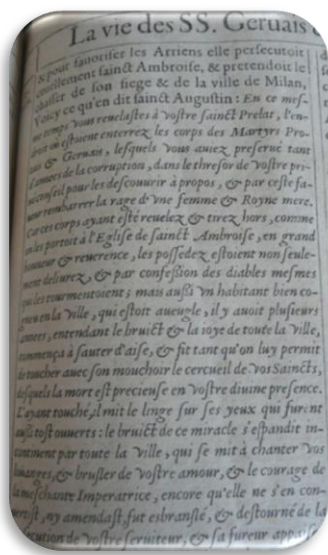 La vie des SS. Geruais
& pour fauoriser les Arriens elle persecutoit
cruellement sainct Ambroise, & pretendoit le
chasser de son siege & de la ville de Milan,
Voicy ce qu'en dit sainct Augustin : En ce mes-
me temps vous reuelastes à vostre sainct Prelat, l'en-
droit où estoient enterrez les corps des Martyrs Pro-
tais & Geruais, lesquels vous auiez preserué tant
d'années de la corruption, dans le thresor de vostre pri-
ué conseil pour les descouurir à propos, & par ceste fa-
rembarrer la rage d'vne femme & Royne mere.
Car ces corps ayant esté reuelez & tirez hors, comme
on les portoit à l'Eglise de sainct Ambroise, en grand
honneur & reuerence, les possedez estoient non seule-
ment deliurez, & par confession des diables mesmes
qui les tourmentoient ; mais aussi vn habitant bien co-
gneu en la ville, qui estoit aueugle, il y auoit plusieurs
années, entendant le bruict & la ioye de toute la ville,
commença à sauter d'aise, & fit tant qu'on luy permit
de toucher auec son mouchoir le cercueil de vos Saincts,
desquels la mort est precieuse en vostre diuine presence.
L'ayant touché, il mit le linge sur ses yeux qui furent
aussi tost ouuerts : le bruict de ce miracle s'espandit in-
continent par toute la ville, qui se mit à chanter vos
louanges, & brusler de vostre amour, & le courage de
la meschante Imperatrice, encore qu'elle ne s'en con-
uertist, ny amendast, fut esbranslé, & destourné de la
persecution de vostre seruiteur, & sa fureur appaisé